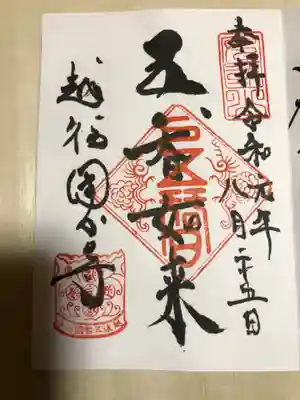 奉拝 令和元年八月二十五日
五智如来
越後國分寺